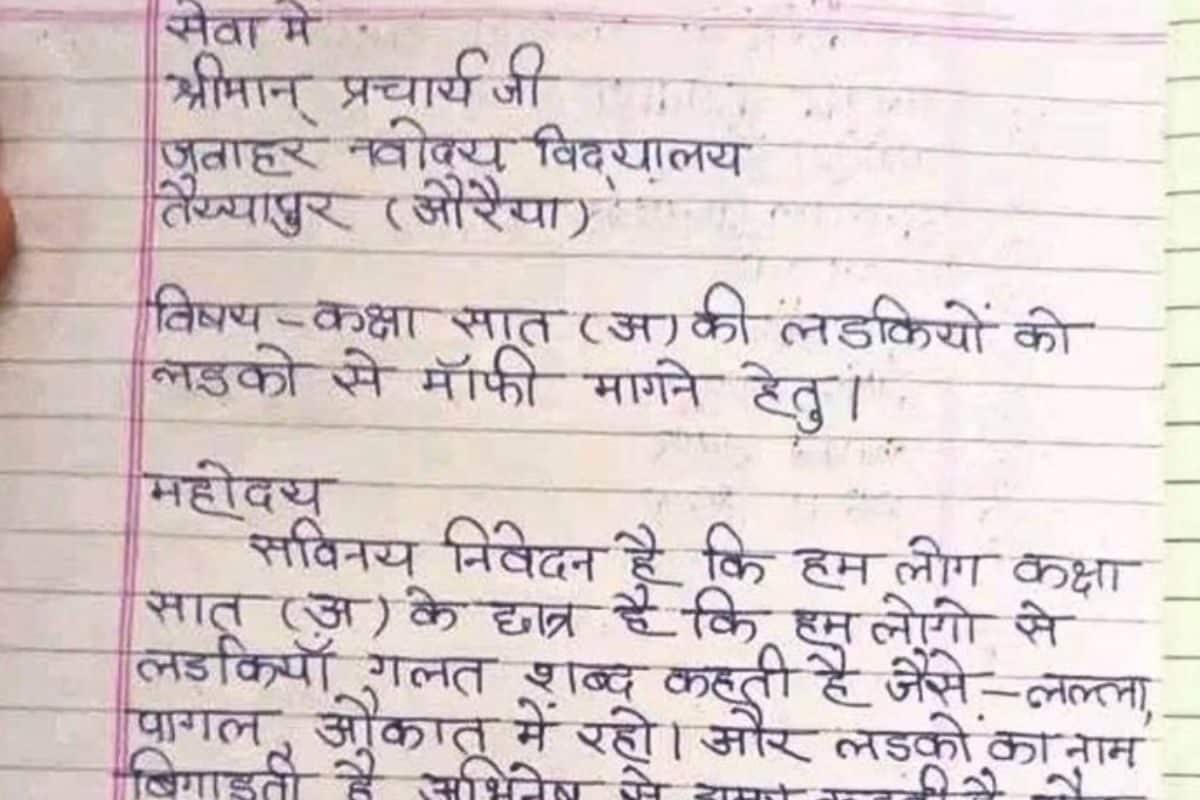 सेवा मे
श्रीमान् प्रचार्य जी
जवाहर नवोदय विद्यालय
तैय्यापुर (औरैया)
विषय - कक्षा सात (अ) की लडकियों को
लडको से मॉफी मागने हेतु।
महोदय
सविनय निवेदन है कि हम लोग कक्षा
सात (अ) के छात्र है कि हम लोगो से
लडकियाँ गलत शब्द कहती है जैसे - लल्ला,
पागल, औकात में रहो। और लडकों का नाम
बिगाडती है